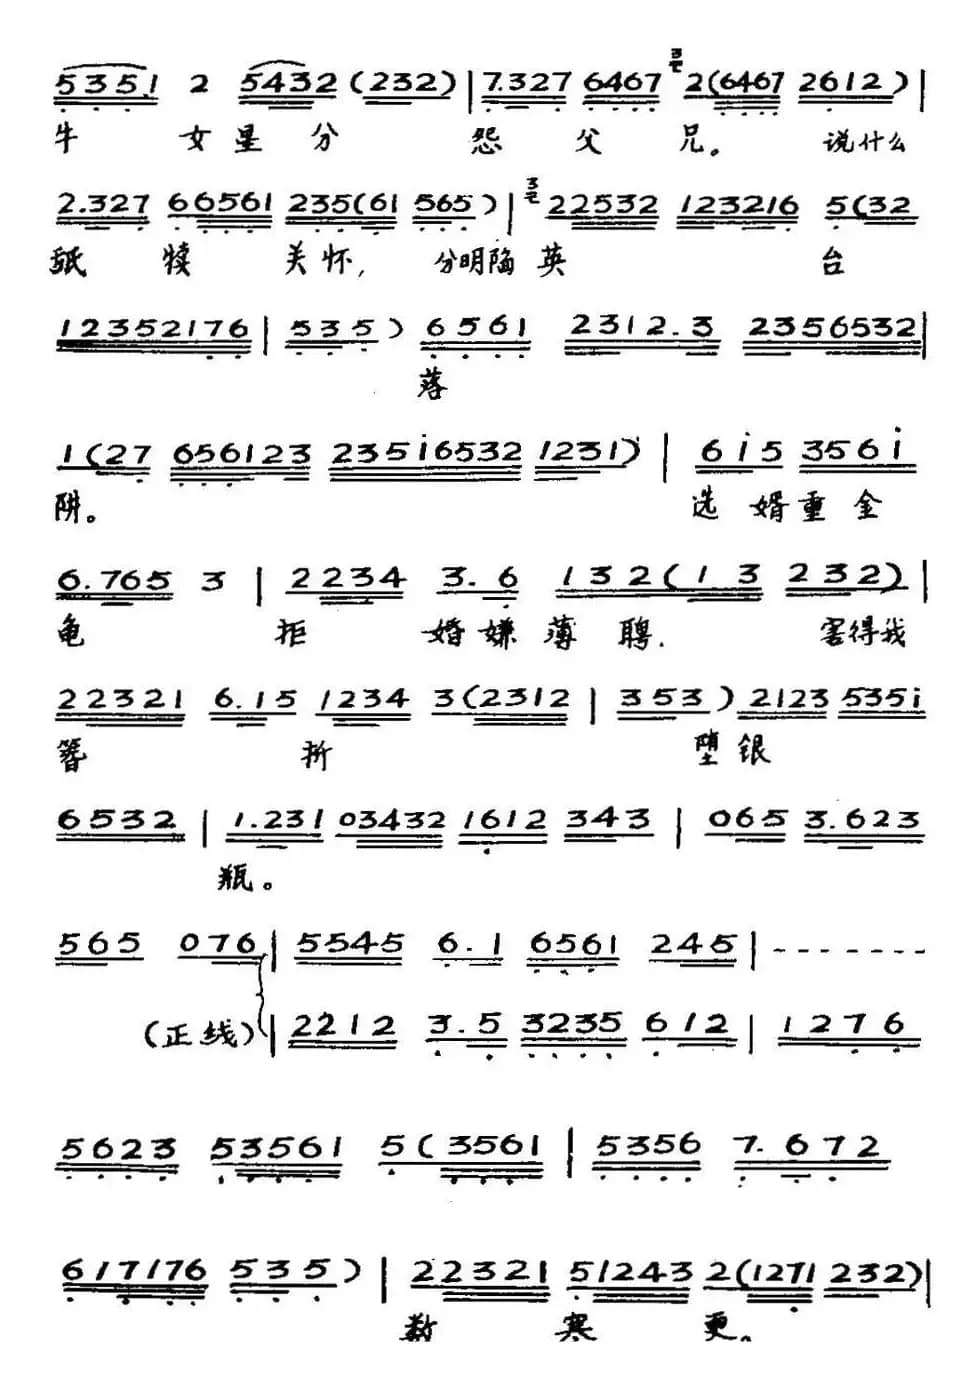 5351 2 5432 (232) | 7.327 6467 2(6467 2612) |
牛 女星分 怨 父 兄。 说什么
2.327 66561 235(61 565) | 22532 123216 5(32
舐 犊 关怀, 分明陷英 台
12352176 | 535) 6561 2312.3 2356532 |
落
1(27 656123 235i6532 1231) | 6i5 356i
阱。 选 婿重金
6.765 3 | 2234 3.6 132(13 232) |
龟 拒 婚嫌薄聘, 害得我
22321 6.15 1234 3(2312 | 353) 2123 535i
簪 折 堕银
6532 | 1.231 03432 1612 343 | 065 3.623
瓶。
565 076 | 5545 6.1 6561 245 | - - - - - - -
(正线) | 2212 3.5 3235 612 | 1276
5623 53561 5(3561 | 5356 7.672
617176 535) | 22321 51243 2(1271 232) |
数 寒 更。